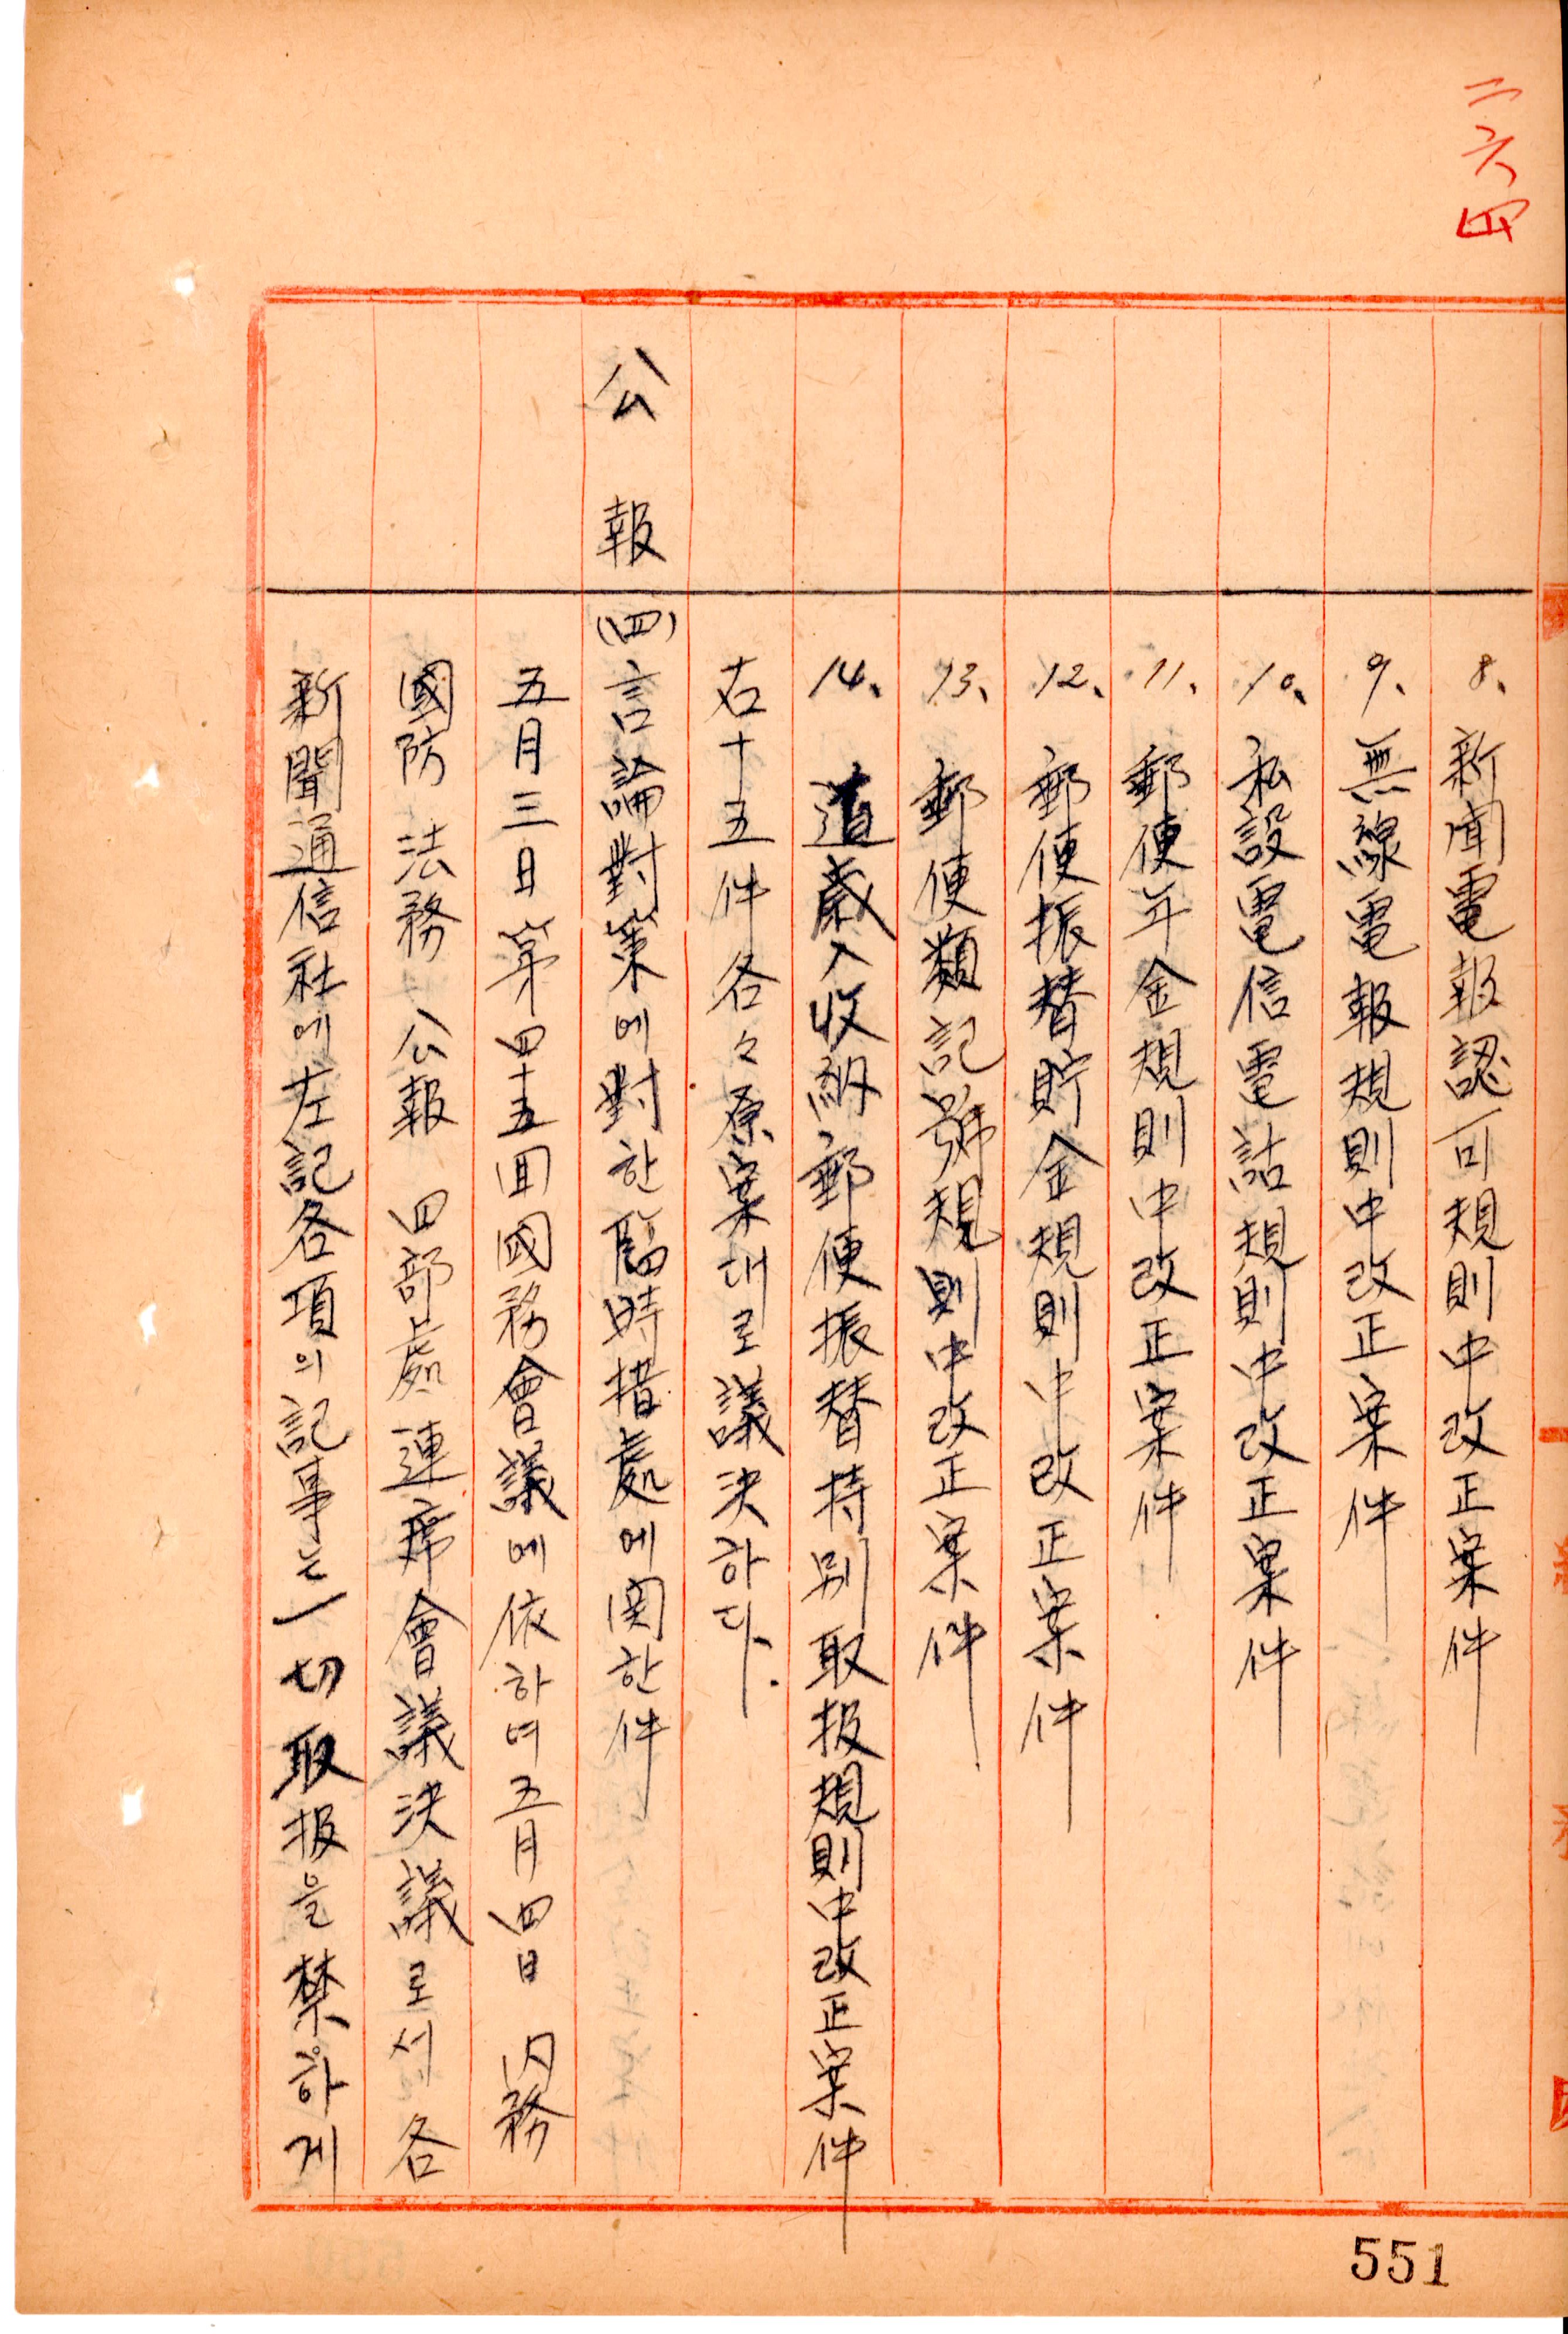 二六四
8、新聞電報認可規則中改正案件
9、無線電報規則中改正案件
10、私設電信電話規則中改正案件
11、郵便年金規則中改正案件
12、郵便振替貯金規則中改正案件
13、郵便類記號規則中改正案件
14、道歳入收納郵便振替持別取扱規則中改正案件
右十五件各々原案대로議決하다.
公報 (四)言論對策에對한臨時措處에関한件
五月三日第四十五回國務會議에依하여五月四日 內務
國防 法務 公報 四部處連席會議決議로서 各
新聞通信社에左記各項의記事는一切取扱을禁하게
551